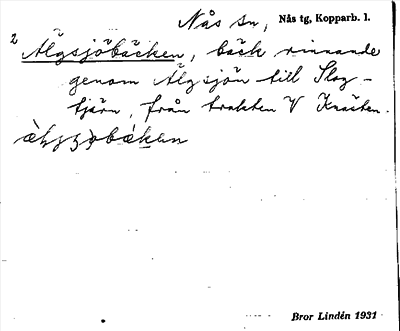 Nås sn, Nås tg, Kopparb. l.
2 Älgsjöbäcken, bäck rinnande
genom Älgsjön till Slog-
tjärn, från trakten V Knasten.
Bror Lindén 1931